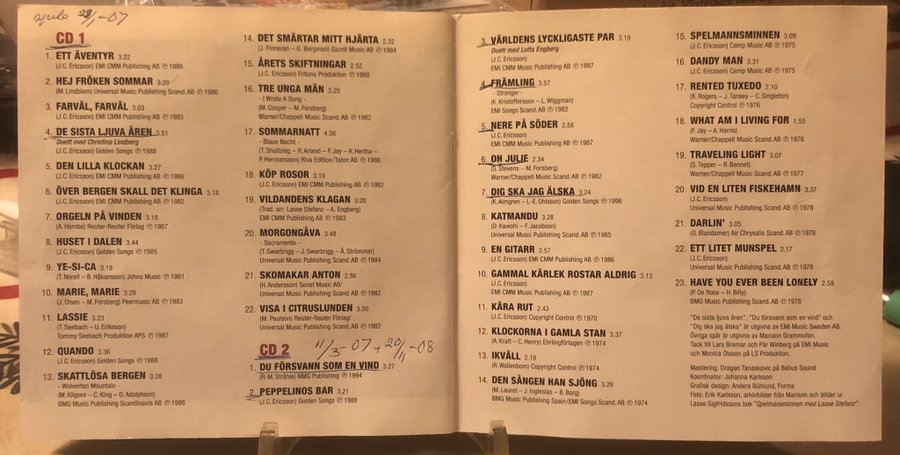 28/1 -07
CD 1
1. ETT ÄVENTYR 3.22
(J.C. Ericsson) EMI CMM Publishing ℗ 1986
2. HEJ FRÖKEN SOMMAR 3.20
(M. Lindblom) Universal Music Publishing Scand. AB ℗ 1986
3. FARVÄL, FARVÄL 3.03
(J.C. Ericsson) EMI CMM Publishing ℗ 1984
4. DE SISTA LJUVA ÅREN 3.51
Duett med Christina Lindberg
(J.C. Ericsson) Golden Songs ℗ 1988
5. DEN LILLA KLOCKAN 3.27
(J.C. Ericsson) EMI CMM Publishing ℗ 1986
6. ÖVER BERGEN SKALL DET KLINGA 3.18
(J.C. Ericsson) EMI CMM Publishing ℗ 1982
7. ORGELN PÅ VINDEN 3.18
(A. Hambe) Reuter-Reuter Förlag ℗ 1987
8. HUSET I DALEN 3.44
(J.C. Ericsson) Golden Songs ℗ 1985
9. YE-SI-CA 3.18
(T. Norell – B. Håkansson) Johns Music ℗ 1981
10. MARIE, MARIE 3.29
(J. Olsen – M. Forsberg) Peermusic AB ℗ 1983
11. LASSIE 3.23
(T. Seebach – U. Eriksson)
Tommy Seebach Production APS ℗ 1987
12. QUANDO 3.36
(J.C. Ericsson) Golden Songs ℗ 1988
13. SKATTLÖSA BERGEN 3.28
- Wolverton Mountain -
(M. Kilgore – C. King – D. Adolphson)
BMG Music Publishing Scandinavia AB ℗ 1988
14. DET SMÄRTAR MITT HJÄRTA 2.32
(J. Finneran – G. Bergman) Gazell Music AB ℗ 1984
15. ÅRETS SKIFTNINGAR 2.52
(J.C. Ericsson) Fritona Produktion ℗ 1988
16. TRE UNGA MÄN 3.25
- I Wrote A Song -
(M. Cooper – M. Forsberg)
Warner/Chappell Music Scand. AB ℗ 1982
17. SOMMARNATT 4.06
- Blaue Nacht -
(T. Shultzieg – R. Arland – F. Jay – K. Hertha –
P. Hermansson) Riva Edition/Taiton AB ℗ 1986
18. KÖP ROSOR 3.19
(J.C. Ericsson) EMI CMM Publishing ℗ 1982
19. VILDANDENS KLAGAN 3.20
(Trad. arr: Lasse Stefanz – A. Engberg)
EMI CMM Publishing AB ℗ 1983
20. MORGONGÅVA 3.48
- Sacramento -
(T. Swarbrigg – J. Swarbrigg – Å. Strömmer)
Universal Music Publishing Scand. AB ℗ 1984
21. SKOMAKAR ANTON 2.56
(H. Andersson) Sonet Music AB/
Universal Music Publishing Scand. AB ℗ 1982
22. VISA I CITRUSLUNDEN 3.20
(M. Paulson) Reuter-Reuter Förlag/
Universal Music Publishing Scand. AB ℗ 1982
11/3 -07 + 20/11 -08
CD 2
1. DU FÖRSVANN SOM EN VIND 3.27
(R-M. Stråhle) NMG Publishing ℗ 1994
2. PEPPELINOS BAR 3.21
(J.C. Ericsson) Golden Songs ℗ 1988
3. VÄRLDENS LYCKLIGASTE PAR 3.19
Duett med Lotta Engberg
(J.C. Ericsson) EMI CMM Music Publishing AB ℗ 1987
4. FRÄMLING 3.57
- Stranger -
(K. Kristoffersson – L. Wiggman)
EMI Songs Scand. AB ℗ 1982
5. NERE PÅ SÖDER 2.58
(J.C. Ericsson)
EMI CMM Music Publishing AB ℗ 1987
6. OH JULIE 2.34
(S. Stevens – M. Forsberg)
Warner/Chappell Music Scand. AB ℗ 1982
7. DIG SKA JAG ÄLSKA 3.24
(K. Almgren – L-E. Ohlsson) Golden Songs ℗ 1996
8. KATMANDU 3.28
(D. Kawohl – F. Jacobson)
Universal Music Publishing Scand. AB ℗ 1985
9. EN GITARR 2.57
(J.C. Ericsson) EMI CMM Publishing AB ℗ 1986
10. GAMMAL KÄRLEK ROSTAR ALDRIG 3.13
(J.C. Ericsson)
EMI CMM Music Publishing AB ℗ 1987
11. KÄRA RUT 2.43
(J.C. Ericsson) Copyright Control ℗ 1970
12. KLOCKORNA I GAMLA STAN 3.37
(A. Kraft – C. Henry) Ehrlingförlagen ℗ 1974
13. IKVÄLL 2.19
(R. Wallenbom) Copyright Control ℗ 1974
14. DEN SÅNGEN HAN SJÖNG 3.29
(M. Lauret – J. Inglesias – B. Borg)
BMG Music Publishing Spain/EMI Songs Scand. AB ℗ 1974
15. SPELMANNSMINNEN 3.09
(J.C. Ericsson) Camp Music AB ℗ 1975
16. DANDY MAN 3.31
(J.C. Ericsson) Camp Music AB ℗ 1975
17. RENTED TUXEDO 2.10
(K. Rogers – J. Tansey – C. Singleton)
Copyright Control ℗ 1976
18. WHAT AM I LIVING FOR 1.55
(F. Jay – A. Harris)
Warner/Chappell Music Scand. AB ℗ 1976
19. TRAVELING LIGHT 3.07
(S. Tepper – R. Bennet)
Warner/Chappell Music Scand. AB ℗ 1977
20. VID EN LITEN FISKEHAMN 3.37
(J.C. Ericsson)
Universal Music Publishing Scand. AB ℗ 1978
21. DARLIN' 3.05
(O. Blandamer) Air Chrysalis Scand. AB ℗ 1978
22. ETT LITET MUNSPEL 2.17
(J.C. Ericsson)
Universal Music Publishing Scand. AB ℗ 1978
23. HAVE YOU EVER BEEN LONELY 2.58
(P. De Rose – H. Billy)
BMG Music Publishing Scand. AB ℗ 1978
"De sista ljuva åren", "Du försvann som en vind" och
"Dig ska jag älska" är utgivna av EMI Music Sweden AB.
Övriga spår är utgivna av Mariann Grammofon.
Tack till Lars Bremar och Pär Winberg på EMI Music
och Monica Olsson på LS Produktion.
Mastering: Dragan Tanaskovic på Bohus Sound
Koordinator: Johanna Karlsson
Grafisk design: Anders Bühlund, Forma
Foto: Erik Karlsson, arkivbilder från Mariann och bilder ur
Lasse Sigfridssons bok "Spelmansminnen med Lasse Stefanz".